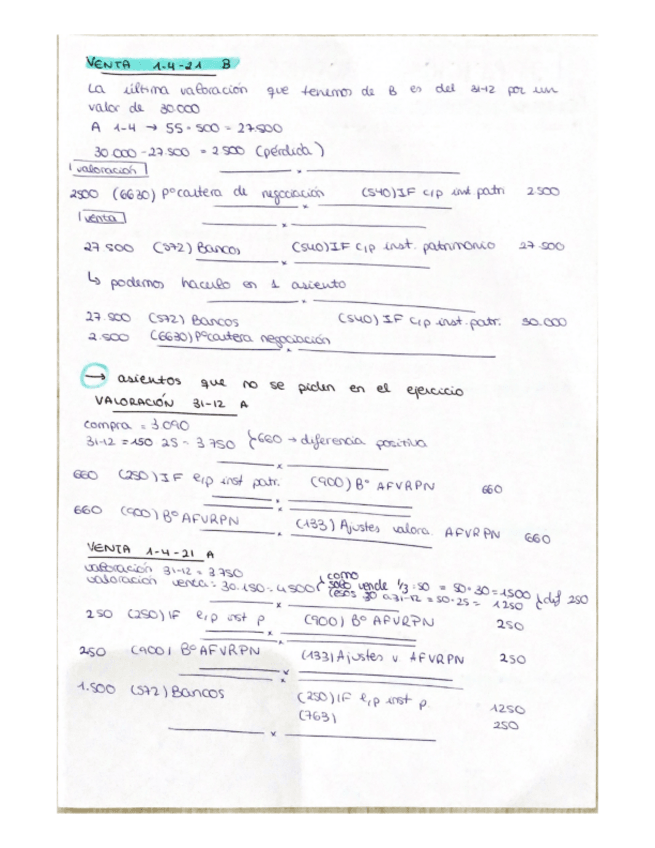 VENTA 1-4-21 B
La última valoración que tenemos de B es del 31-12 por un
valor de 30.000
A 1-4 → 55 · 500 = 27.500
30.000 - 27.500 = 2500 (pérdida)
valoración
2500 (6630) Pº cartera de negociación (540) IF c/p inst patri 2500
venta
27 500 (572) Bancos (540) IF c/p inst. patrimonio 27.500
↳ podemos hacerlo en 1 asiento
27.500 (572) Bancos (540) IF c/p inst. patr. 30.000
2.500 (6630) Pº cartera negociación
→ asientos que no se piden en el ejercicio
VALORACIÓN 31-12 A
compra = 3090
31-12 = 150 · 25 = 3750 } 660 → diferencia positiva
660 (250) IF l/p inst patr. (900) Bº AFVRPN 660
660 (900) Bº AFVRPN (133) Ajustes valora. AFVRPN 660
VENTA 1-4-21 A
valoración 31-12 = 3750
valoración venta = 30 · 150 = 4500 } como solo vende 1/3 : 50 = 50 · 30 = 1500
30 a 31-12 = 50 · 25 = 1250 } dif 250
250 (250) IF l/p inst p (900) Bº AFVRPN 250
250 (900) Bº AFVRPN (133) Ajustes v AFVRPN 250
1.500 (572) Bancos (250) IF l/p inst p. 1250
(763) 250